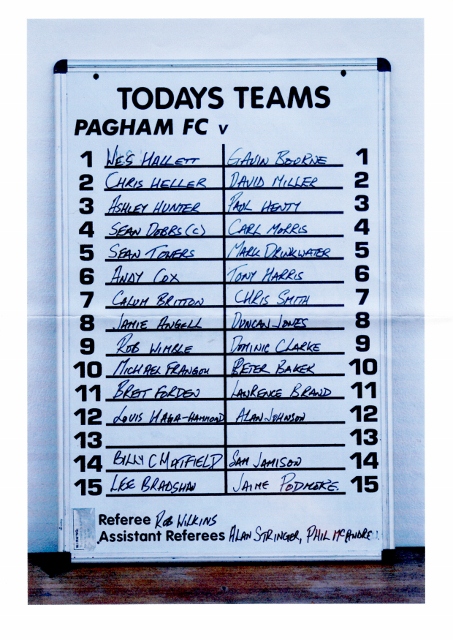 TODAYS TEAMS
PAGHAM FC v
1 WES HALLETT GAVIN BOURNE 1
2 CHRIS HELLER DAVID MILLER 2
3 ASHLEY HUNTER PAUL HENTY 3
4 SEAN DOBBS (C) CARL MORRIS 4
5 SEAN TOWERS MARK DRINKWATER 5
6 ANDY COX TONY HARRIS 6
7 CALUM BRITTON CHRIS SMITH 7
8 JAMIE ANGELL DUNCAN JONES 8
9 ROB WIMBLE DOMINIC CLARKE 9
10 MICHAEL FRANGOU PETER BAKER 10
11 BRET FORDEN LAWRENCE BRAND 11
12 LOUIS HAGA-HAMMOND ALAN JOHNSON 12
13 13
14 BILLY C MATFIELD SAM JAMISON 14
15 LEE BRADSHAW JAIME PODMORE 15
Referee ROB WILKINS
Assistant Referees ALAN STRINGER, PHIL MCANDRE